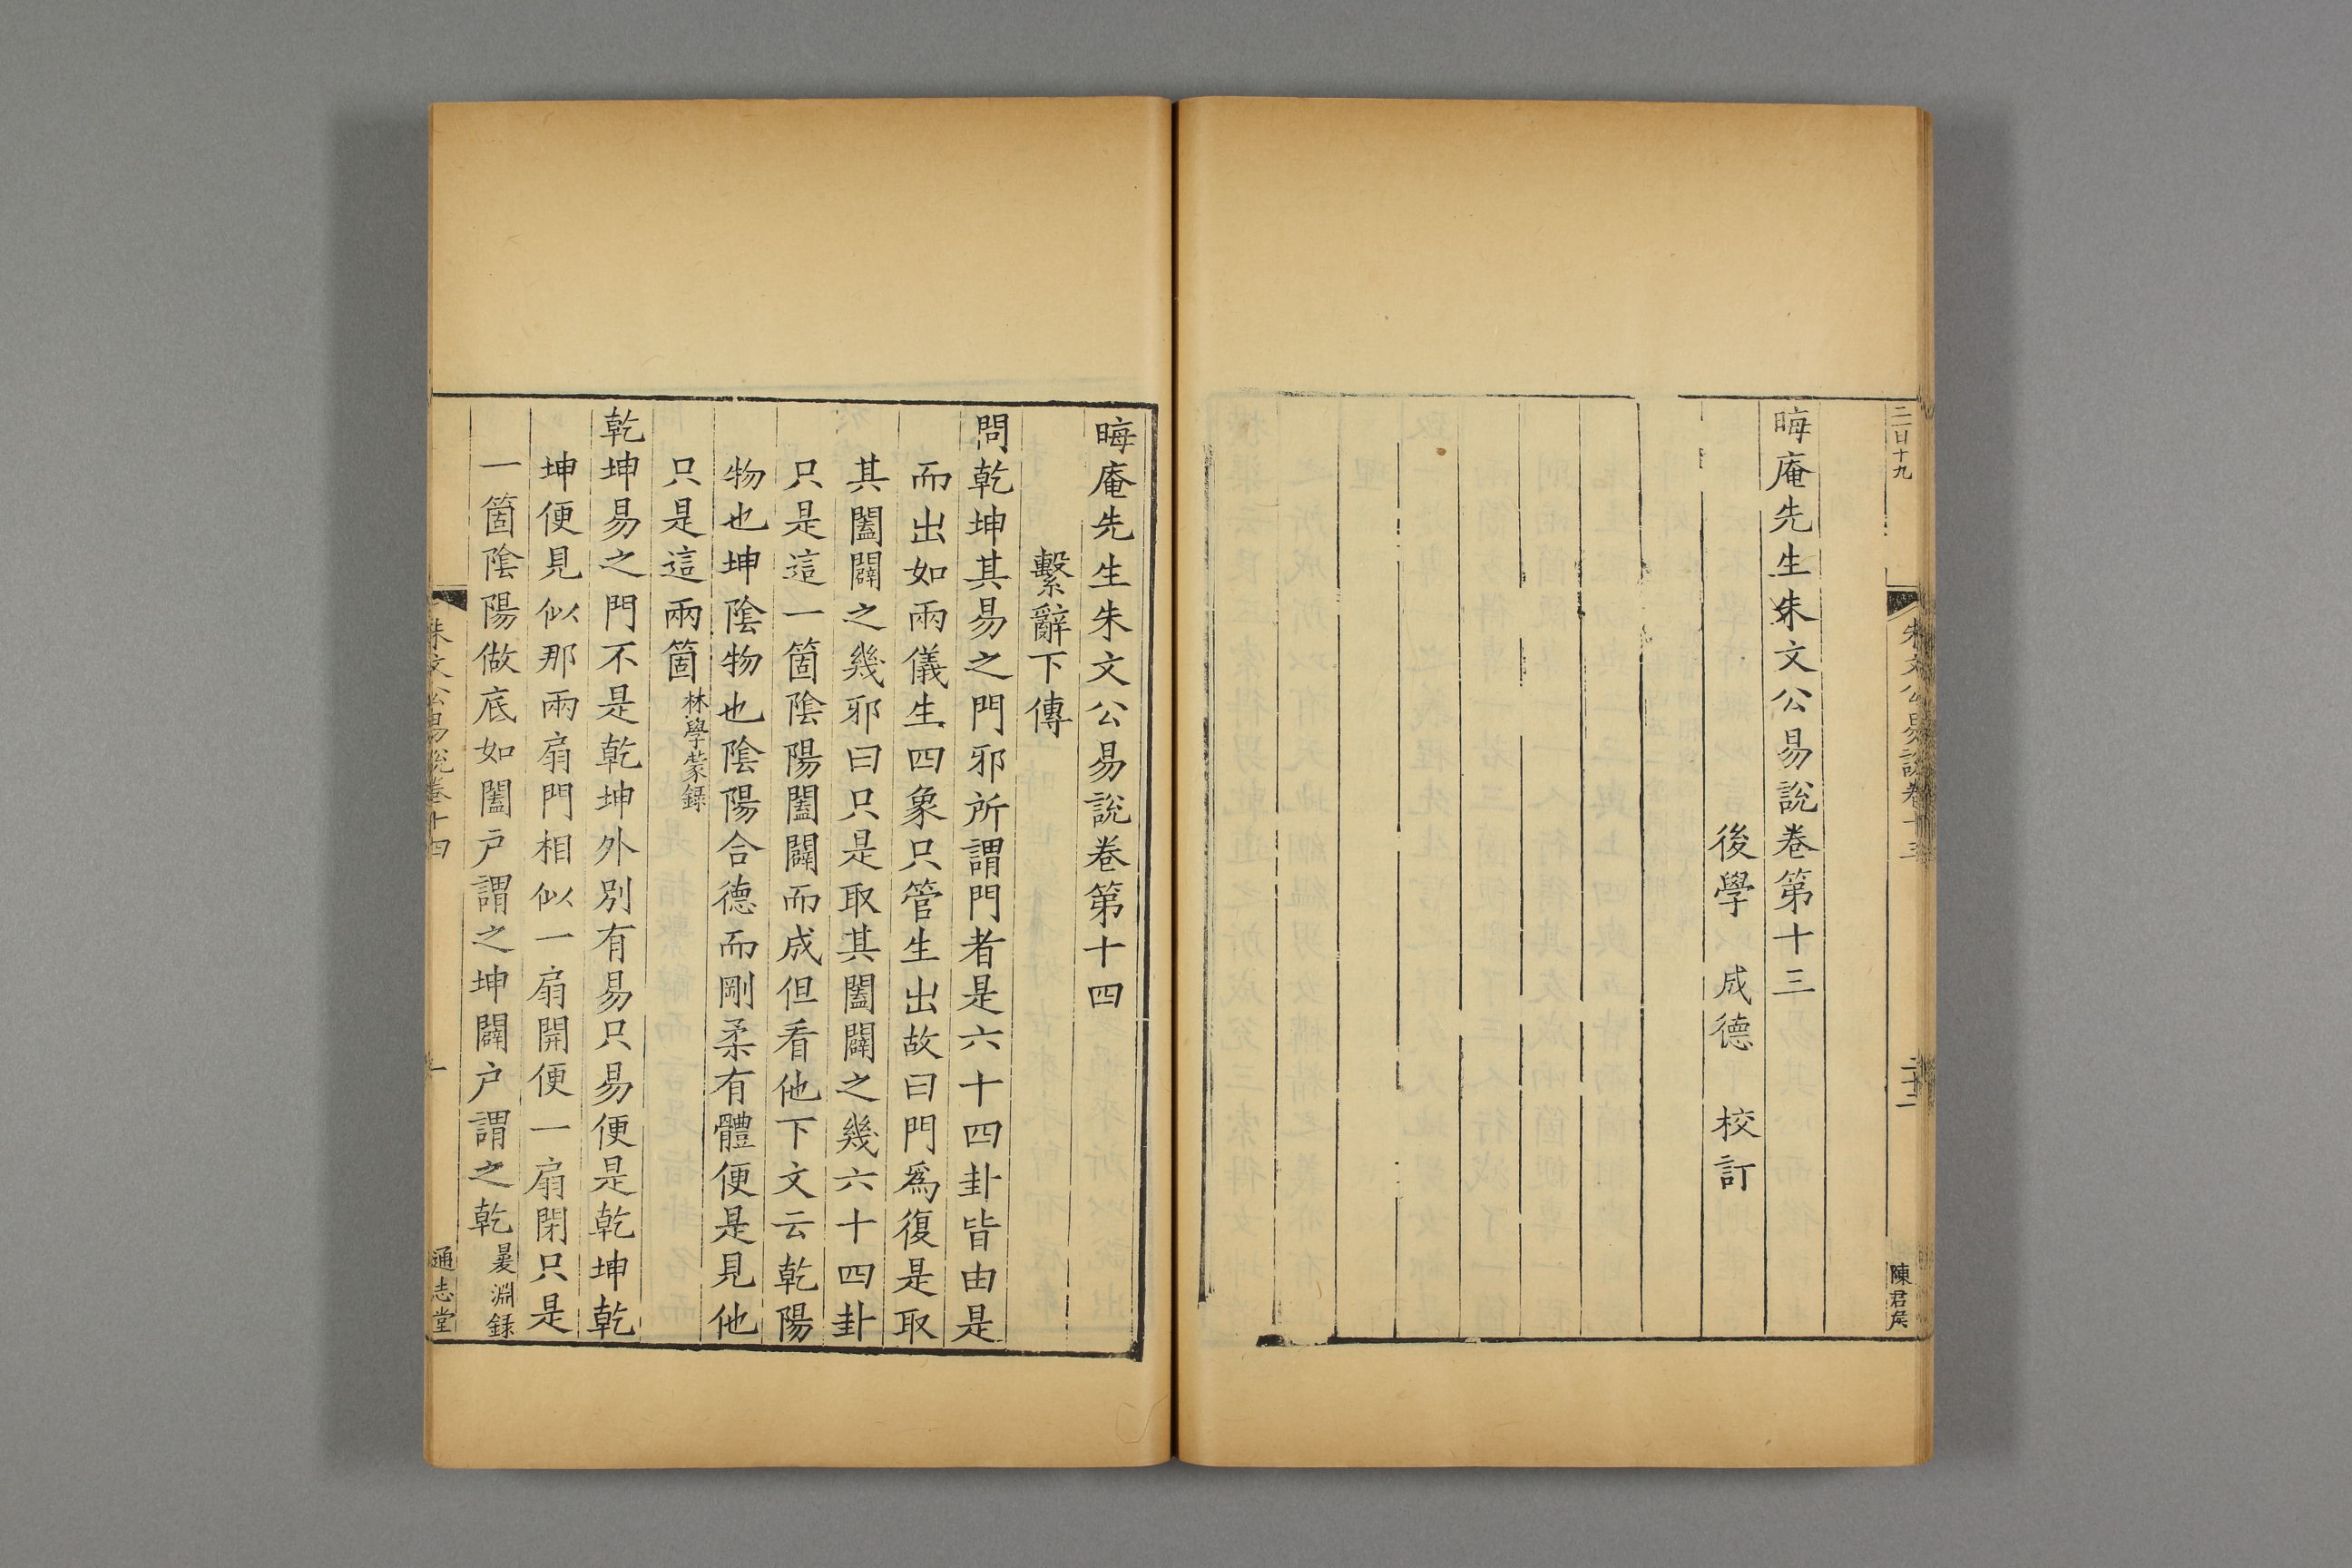 二百十九
朱文公易說卷十三
二十二
陳君矦
晦庵先生朱文公易說卷第十三
後學 成德 校訂
晦庵先生朱文公易說卷第十四
繫辭下傳
問乾坤其易之門邪所謂門者是六十四卦皆由是
而出如兩儀生四象只管生出故曰門爲復是取
其闔闢之幾邪曰只是取其闔闢之幾六十四卦
只是這一箇陰陽闔闢而成但看他下文云乾陽
物也坤陰物也陰陽合德而剛柔有體便是見他
只是這兩箇林學蒙録
乾坤易之門不是乾坤外别有易只易便是乾坤乾
坤便見似那兩扇門相似一扇開便一扇閉只是
一箇陰陽做底如闔户謂之坤闢户謂之乾㬊淵録
朱文公易說卷十四
一
通志堂